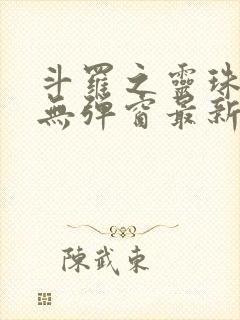 斗羅之靈珠
無彈窗最新
陳武東